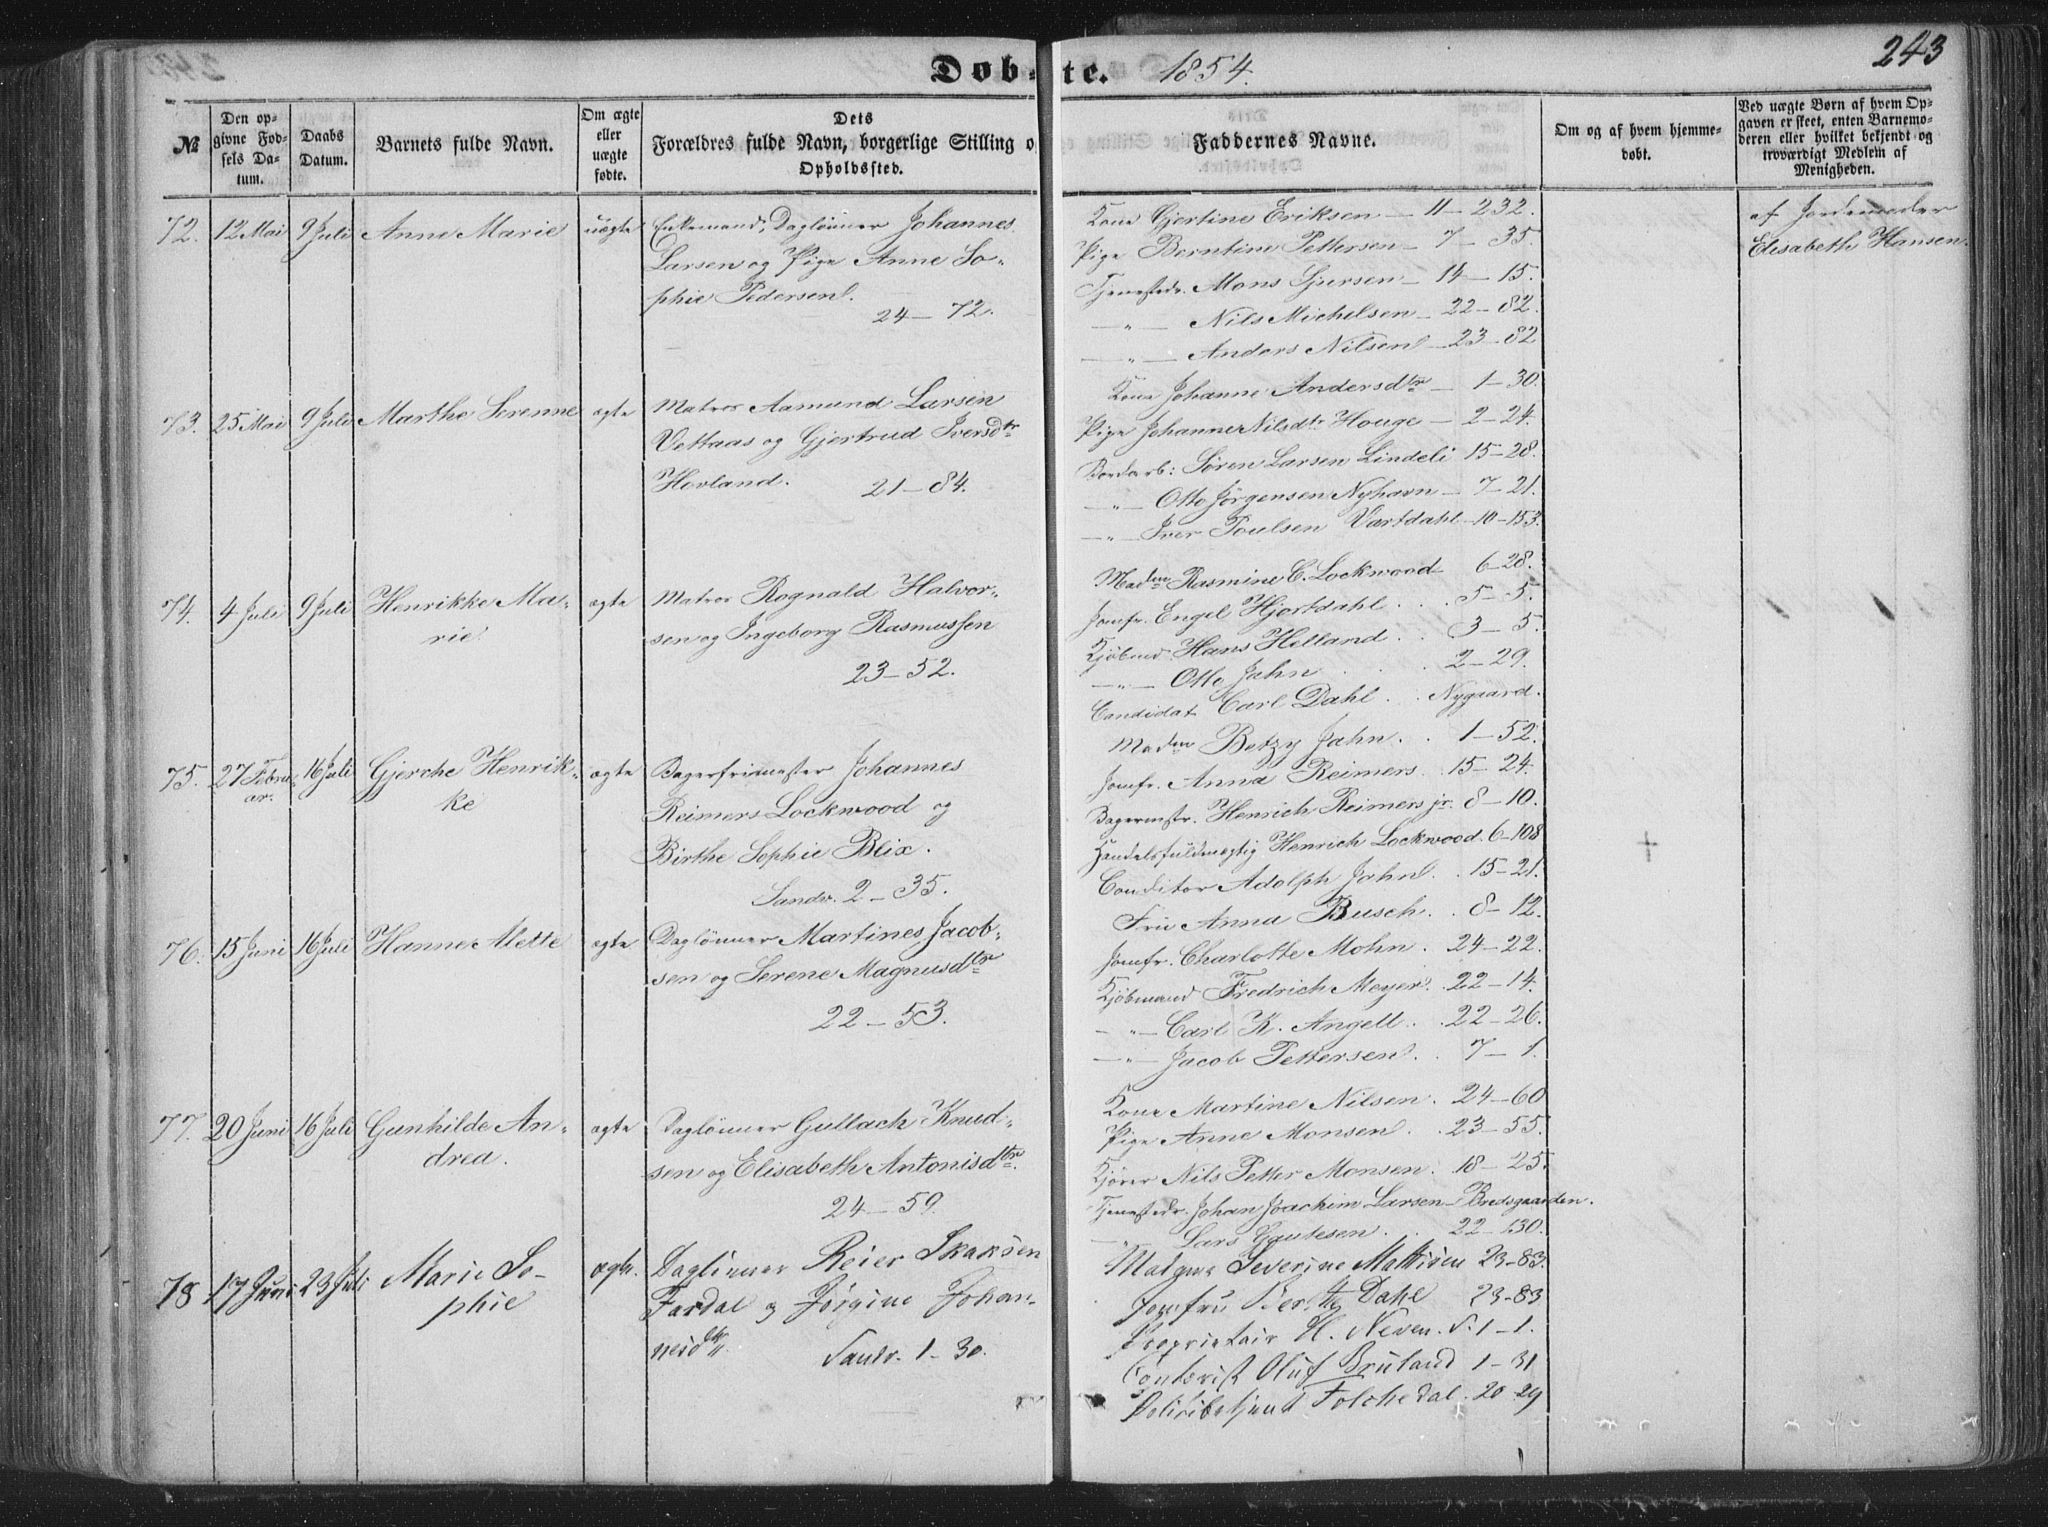 Døb-te. 1854. 243
№
Den op-
givne Fød-
sels Da-
tum.
Daabs
Datum.
Barnets fulde Navn.
Om ægte
eller
uægte
fødte.
Dets
Forældres fulde Navn, borgerlige Stilling o
Opholdssted.
Faddernes Navne.
Om og af hvem hjemme-
døbt.
Ved uægte Børn af hvem Op-
gaven er skeet, enten Barnemo-
deren eller hvilket bekjendt og
troværdigt Medlem af
Menigheden.
72. 12 Mai 9 Juli Anne Marie uægte Enkemand, Daglønner Johannes
Larsen og Pige Anne So-
phie Pedersen.
24-72.
Kone Gjertine Eriksen - 11-232.
Pige Berntine Pettersen - 7-35.
Tjenestedr. Mons Sjursen - 14-15.
-"- Nils Michelsen - 22-82.
-"- Anders Nilsen - 23-82
af Jordemoder
Elisabeth Hansen.
73. 25 Mai 9 Juli Marthe Serenne ægte Matros Aamund Larsen
Vettaas og Gjertrud Iversdtr
Hovland. 21-84.
Kone Johanne Andersdtr - 1-30.
Pige Johanne Nilsdtr Houge - 2-24.
Bordarb: Søren Larsen Lindeli 15-28.
-"- Otto Jörgensen Nyhavn - 7-21.
-"- Iver Poulsen Vartdahl - 10-153.
74. 4 Juli 9 Juli Henrikke Ma-
rie ægte Matros Rognald Halvor-
sen og Ingeborg Rasmussen
23-52.
Madm Rasmine C. Lockwood 6-28.
Jomfr. Engel Hjortdahl . . . 5-5.
Kjöbmd Hans Helland . . 3-5.
-"- Otto Jahn . . . 2-29.
Candidat Carl Dahl . . Nygaard.
75. 27 Febru-
ar. 16 Juli Gjerche Henrik-
ke ægte Bagerfrimester Johannes
Reimers Lockwood og
Birthe Sophie Blix.
Sandv. 2-35.
Madm Betzy Jahn . . 1-52.
Jomfr. Anna Reimers. 15-24.
Bagermstr. Henrich Reimers jr. 8-10.
Handelsfuldmægtig Henrich Lockwood. 6-108
Conditor Adolph Jahn. . 15-21.
+
76. 15 Juni 16 Juli Hanne Alette ægte Daglønner Martines Jacob-
sen og Serene Magnusdtr
22-53.
Fru Anna Busch. . 8-12.
Jomfr. Charlotte Mohn . 24-22.
Kjöbmand Fredrich Meyer. . 22-14.
-"- Carl K. Angell . . 22-26.
-"- Jacob Pettersen. . 7-1.
77. 20 Juni 16 Juli Gunhilde An-
drea. ægte Daglønner Gullach Knud-
sen og Elisabeth Antonisdtr.
24-59.
Kone Martine Nilsen . 24-60
Pige Anne Monsen. . 23-55.
Kjörer Nils Petter Monsen. 18-25.
Tjenestedr. Johan Joachim Larsen - Bredsgaarden.
-"- Lars Gautesen. . 22-130.
78 17 Juni 23 Juli Marie So-
phie ægte. Daglönner Reier Skaksen
Fardal og Jörgine Johan-
nesdtr. Sandv. 1-30.
Severine Mathisen 23-83.
Jomfru Berthe Dahl 23-83
Proprietair H. Neven. S. 1-1.
Contorist Oluf Bruland 1-31
Politibetjent Folchedal. 20-29